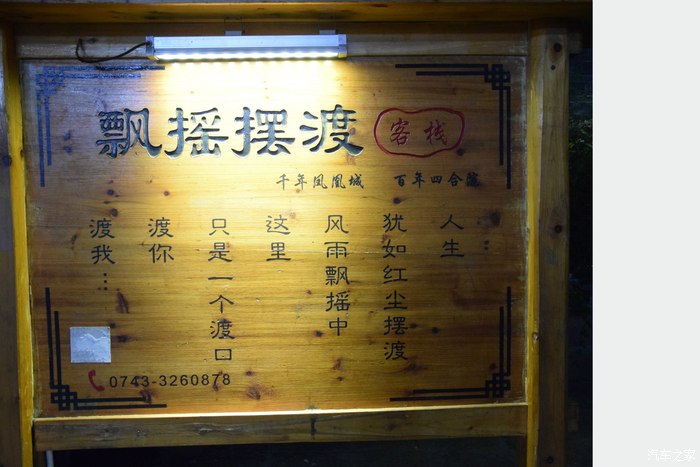 飘摇摆渡 客栈
千年凤凰城 百年四合院
人生…
犹如红尘摆渡
风雨飘摇中
这里
只是一个渡口
渡你
渡我…
0743-3260878
汽车之家